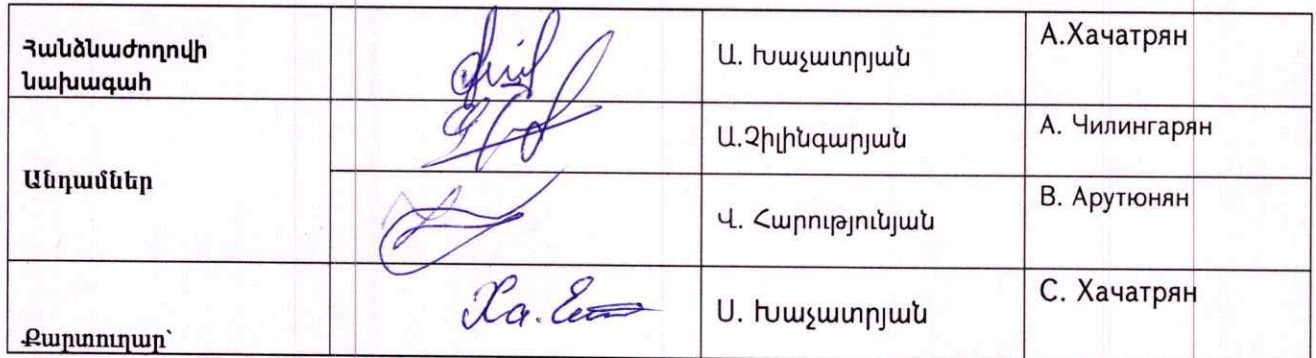 Հանձնաժողովի
նախագահ
Ա. Խաչատրյան
А.Хачатрян
Անդամներ
Ա.Չիլինգարյան
А. Чилингарян
Վ. Հարությունյան
В. Арутюнян
Քարտուղար՝
Ս. Խաչատրյան
С. Хачатрян